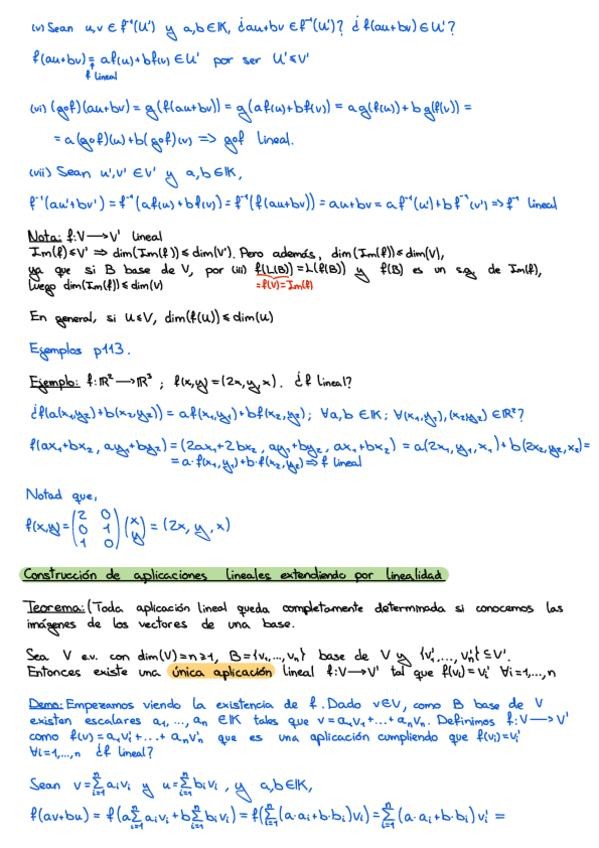 (v) Sean u,v ∈ f⁻¹(U') y a,b∈K, ¿au+bv ∈ f⁻¹(U')? ¿f(au+bv) ∈ U'?
f(au+bv) = af(u)+bf(v) ∈ U' por ser U'≤V'
f lineal
(vi) (g∘f)(au+bv) = g(f(au+bv)) = g(af(u)+bf(v)) = ag(f(u))+bg(f(v)) =
= a(g∘f)(u)+b(g∘f)(v) => g∘f lineal.
(vii) Sean u',v' ∈ V' y a,b∈K,
f⁻¹(au'+bv') = f⁻¹(af(u)+bf(v)) = f⁻¹(f(au+bv)) = au+bv = af⁻¹(u')+bf⁻¹(v') => f⁻¹ lineal
Nota: f:V→V' lineal
Im(f)≤V' => dim(Im(f))≤dim(V'). Pero además, dim(Im(f))≤dim(V),
ya que si B base de V, por (iii) f(L(B))=L(f(B)) y f(B) es un s.g. de Im(f),
luego dim(Im(f))≤dim(V)
=f(V)=Im(f)
En general, si U≤V, dim(f(U))≤dim(U)
Ejemplos p113.
Ejemplo: f:ℝ²→ℝ³ ; f(x,y)=(2x,y,x). ¿f lineal?
¿f(a(x₁,y₁)+b(x₂,y₂)) = af(x₁,y₁)+bf(x₂,y₂); ∀a,b ∈K; ∀(x₁,y₁),(x₂,y₂) ∈ℝ²?
f(ax₁+bx₂, ay₁+by₂) = (2ax₁+2bx₂, ay₁+by₂, ax₁+bx₂) = a(2x₁,y₁,x₁)+b(2x₂,y₂,x₂)=
= a·f(x₁,y₁)+b·f(x₂,y₂) => f lineal
Notad que,
f(x,y)=(2 0
0 1
1 0)(x
y) = (2x, y, x)
Construcción de aplicaciones lineales extendiendo por linealidad
Teorema: (Toda aplicación lineal queda completamente determinada si conocemos las
imágenes de los vectores de una base.
Sea V e.v. con dim(V)=n≥1, B={v₁,...,vₙ} base de V y {v₁',...,vₙ'}⊆V'.
Entonces existe una única aplicación lineal f:V→V' tal que f(vᵢ)=vᵢ' ∀i=1,...,n
Demo: Empezamos viendo la existencia de f. Dado v∈V, como B base de V
existen escalares a₁,...,aₙ ∈K tales que v=a₁v₁+...+aₙvₙ. Definimos f:V→V'
como f(v)=a₁v₁'+...+aₙvₙ' que es una aplicación cumpliendo que f(vᵢ)=vᵢ'
∀i=1,...,n ¿f lineal?
Sean v=∑ⁿᵢ₌₁aᵢvᵢ y u=∑ⁿᵢ₌₁bᵢvᵢ, y a,b∈K,
f(av+bu) = f(a∑ⁿᵢ₌₁aᵢvᵢ+b∑ⁿᵢ₌₁bᵢvᵢ) = f(∑ⁿᵢ₌₁(a·aᵢ+b·bᵢ)vᵢ) = ∑ⁿᵢ₌₁(a·aᵢ+b·bᵢ)vᵢ' =